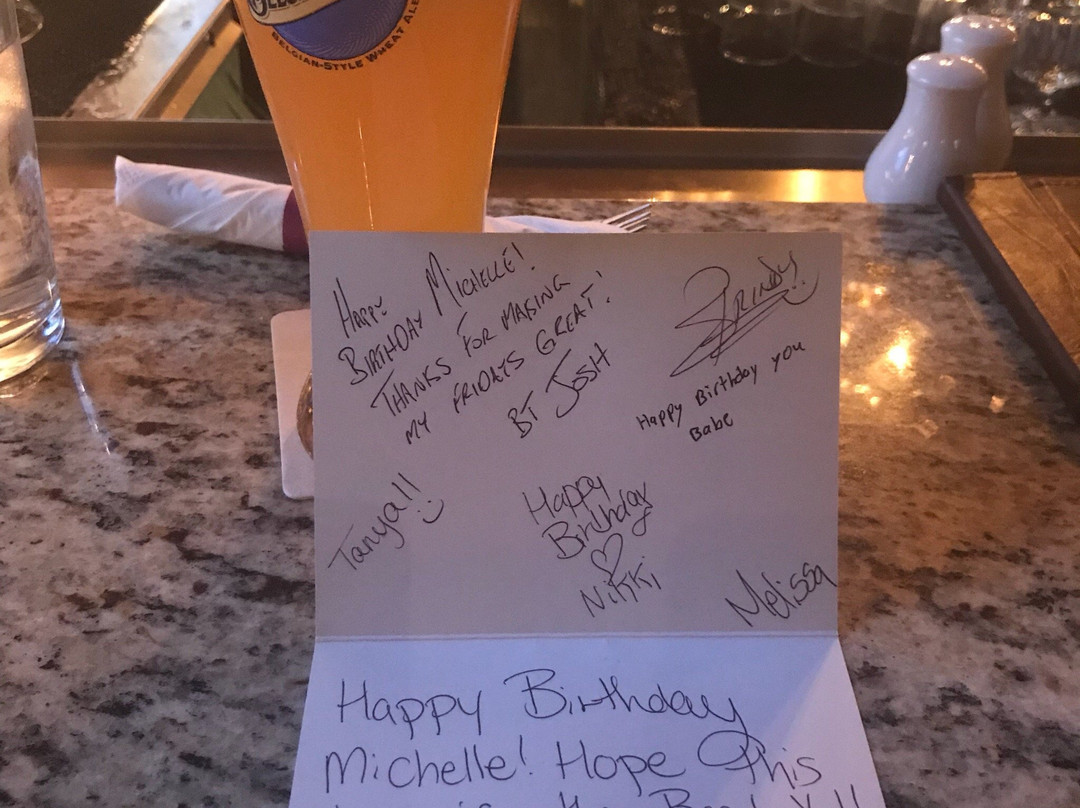 BELGIAN-STYLE WHEAT ALE
HAPPY
BIRTHDAY MICHELLE!
THANKS FOR MAKING
MY FRIDAYS GREAT!
BT JOSH
Happy Birthday you
Babe
Tanya!!
Happy
Birthday
Nikki
Melissa
Happy Birthday
Michelle! Hope This